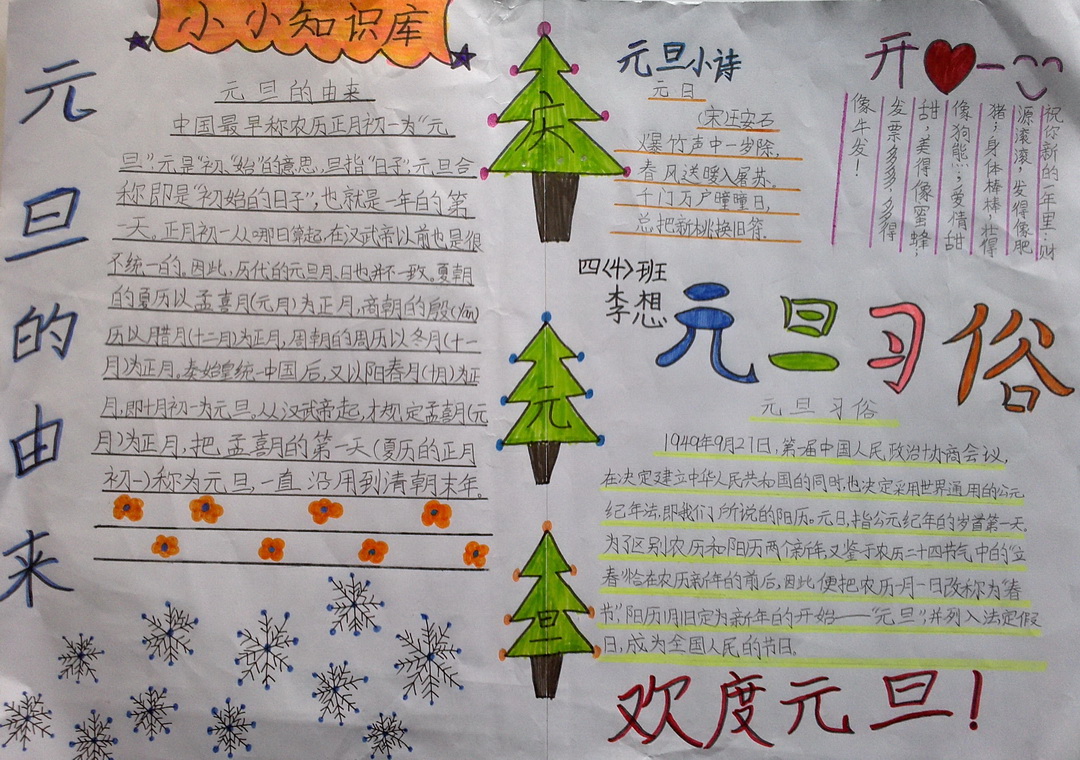 小小知识库
元旦的由来
元旦的由来
中国最早称农历正月初一为“元
旦”元是“初”“始”的意思，旦指“日子”，元旦合
称即是“初始的日子”，也就是一年的第
一天。正月初一从哪日算起，在汉武帝以前也是很
不统一的。因此，历代的元旦月、日也并不一致。夏朝
的夏历以孟喜月(元月)为正月，商朝的殷(yān)
历以腊月(十二月)为正月，周朝的周历以冬月(十一
月)为正月。秦始皇统一中国后，又以阳春月(十月)为正
月，即十月初一为元旦。从汉武帝起，才规定孟喜月(元
月)为正月，把孟喜月的第一天(夏历的正月
初一)称为元旦，一直沿用到清朝末年。
庆
元
旦
元旦小诗
元日
(宋)王安石
爆竹声中一岁除，
春风送暖入屠苏。
千门万户曈曈日，
总把新桃换旧符。
开一
祝你新的一年里：财
源滚滚，发得像肥
猪；身体棒棒，壮得
像狗熊；爱情甜
甜，美得像蜜蜂；
发票多多，多得
像牛发！
四〈4〉班
李想
元旦习俗
元旦习俗
1949年9月27日，第一届中国人民政治协商会议，
在决定建立中华人民共和国的同时，也决定采用世界通用的公元
纪年法，即我们所说的阳历。元旦，指公元纪年的岁首第一天。
为了区别农历和阳历两个新年，又鉴于农历二十四节气中的“立
春”恰在农历新年的前后，因此便把农历一月一日改称为“春
节”阳历1月1日定为新年的开始——“元旦”，并列入法定假
日，成为全国人民的节日。
欢度元旦！